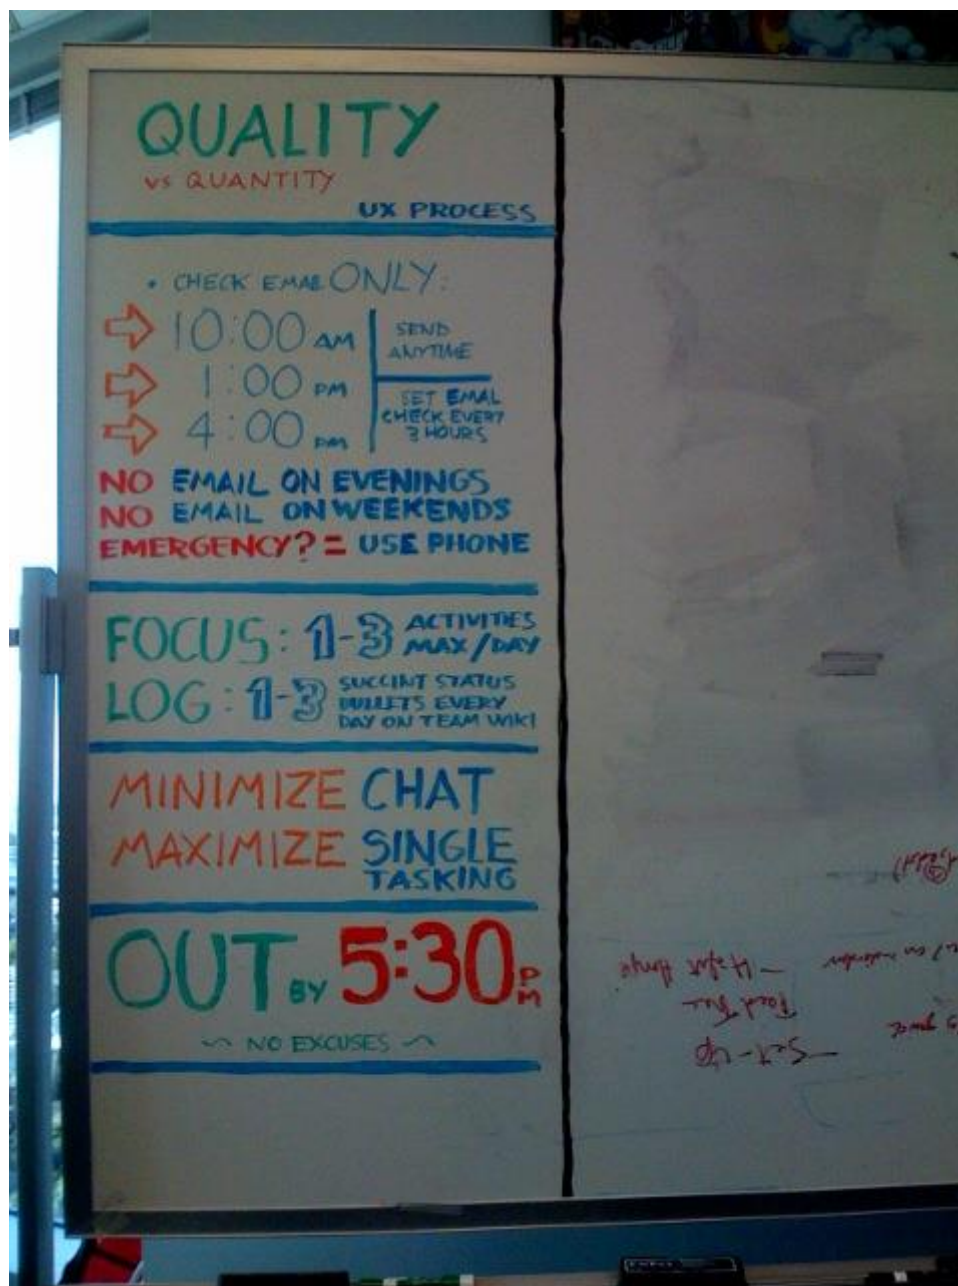 QUALITY
vs QUANTITY
UX PROCESS
• CHECK EMAIL ONLY:
10:00 AM
1:00 PM
4:00 PM
SEND
ANYTIME
SET EMAL
CHECK EVERY
3 HOURS
NO EMAIL ON EVENINGS
NO EMAIL ON WEEKENDS
EMERGENCY? = USE PHONE
FOCUS: 1-3 ACTIVITIES
MAX/DAY
LOG: 1-3 SUCCINT STATUS
BULLETS EVERY
DAY ON TEAM WIKI
MINIMIZE CHAT
MAXIMIZE SINGLE
TASKING
OUT BY 5:30 PM
~ NO EXCUSES ~
- Set-up